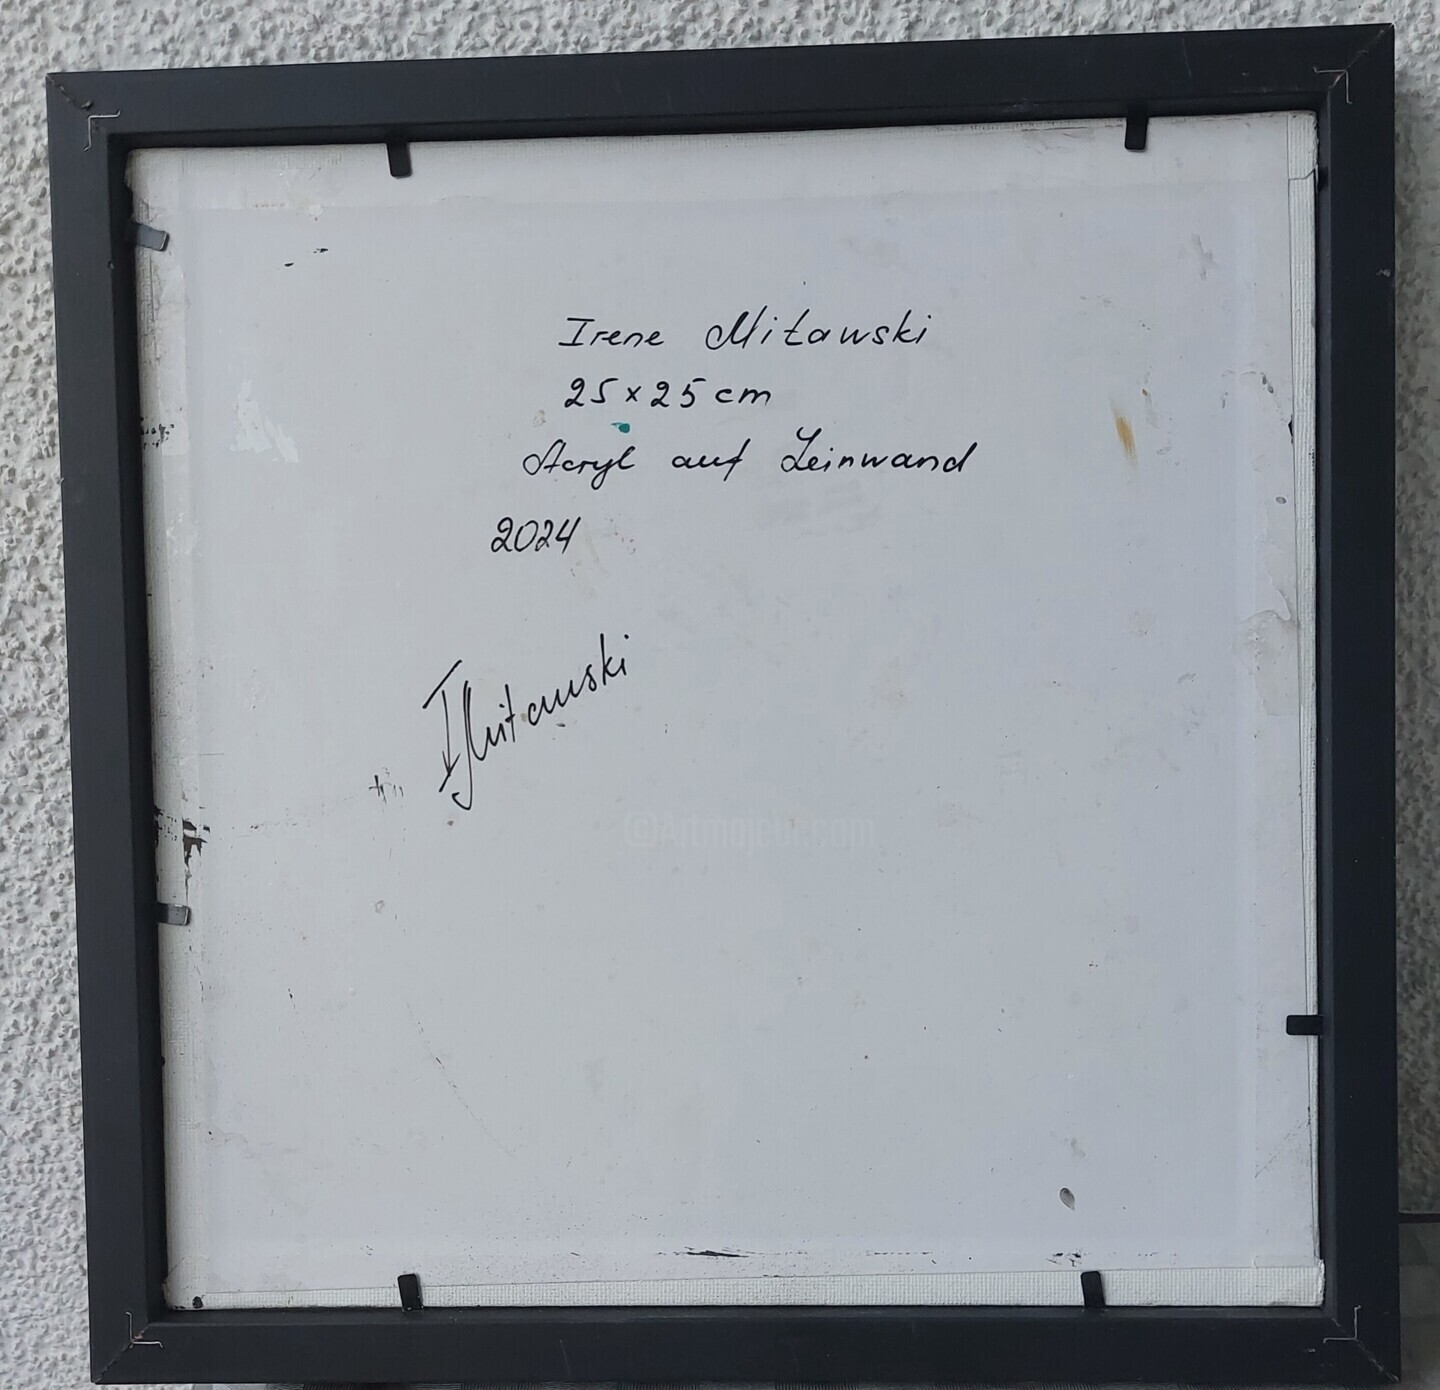 Irene Mitawski
25 x 25 cm
Acryl auf Leinwand
2024
IMitawski
©Artmajeur.com